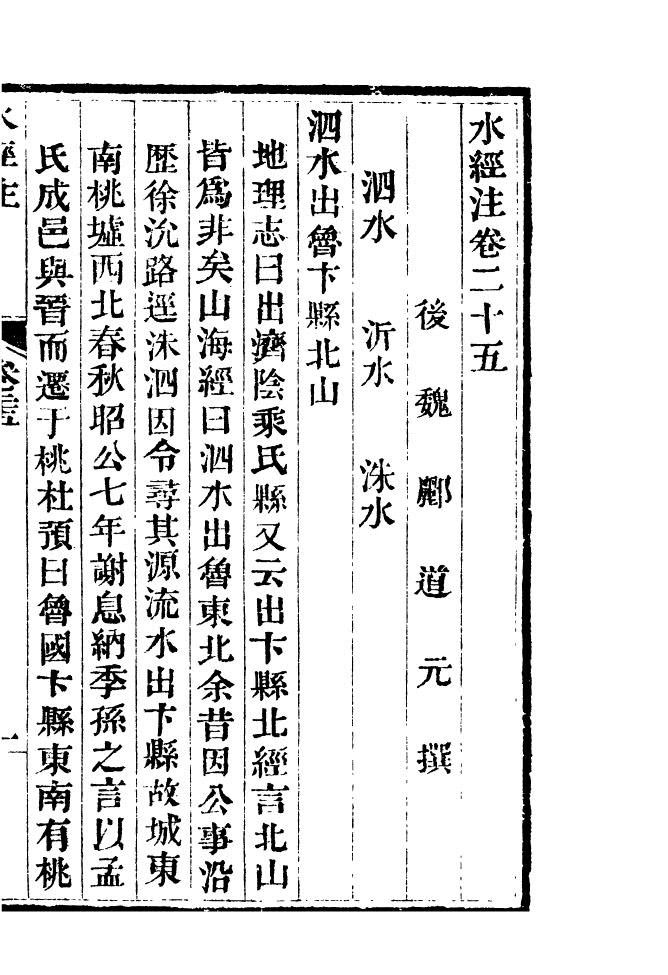 水經注卷二十五
後魏酈道元撰
泗水　沂水　洙水
泗水出魯卞縣北山
地理志曰出濟陰乘氏縣又云出卞縣北經言北山
皆爲非矣山海經曰泗水出魯東北余昔因公事沿
歷徐沇路逕洙泗因令尋其源流水出卞縣故城東
南桃墟西北春秋昭公七年謝息納季孫之言以孟
氏成邑與晉而遷于桃杜預曰魯國卞縣東南有桃
水經注
卷二十五
一